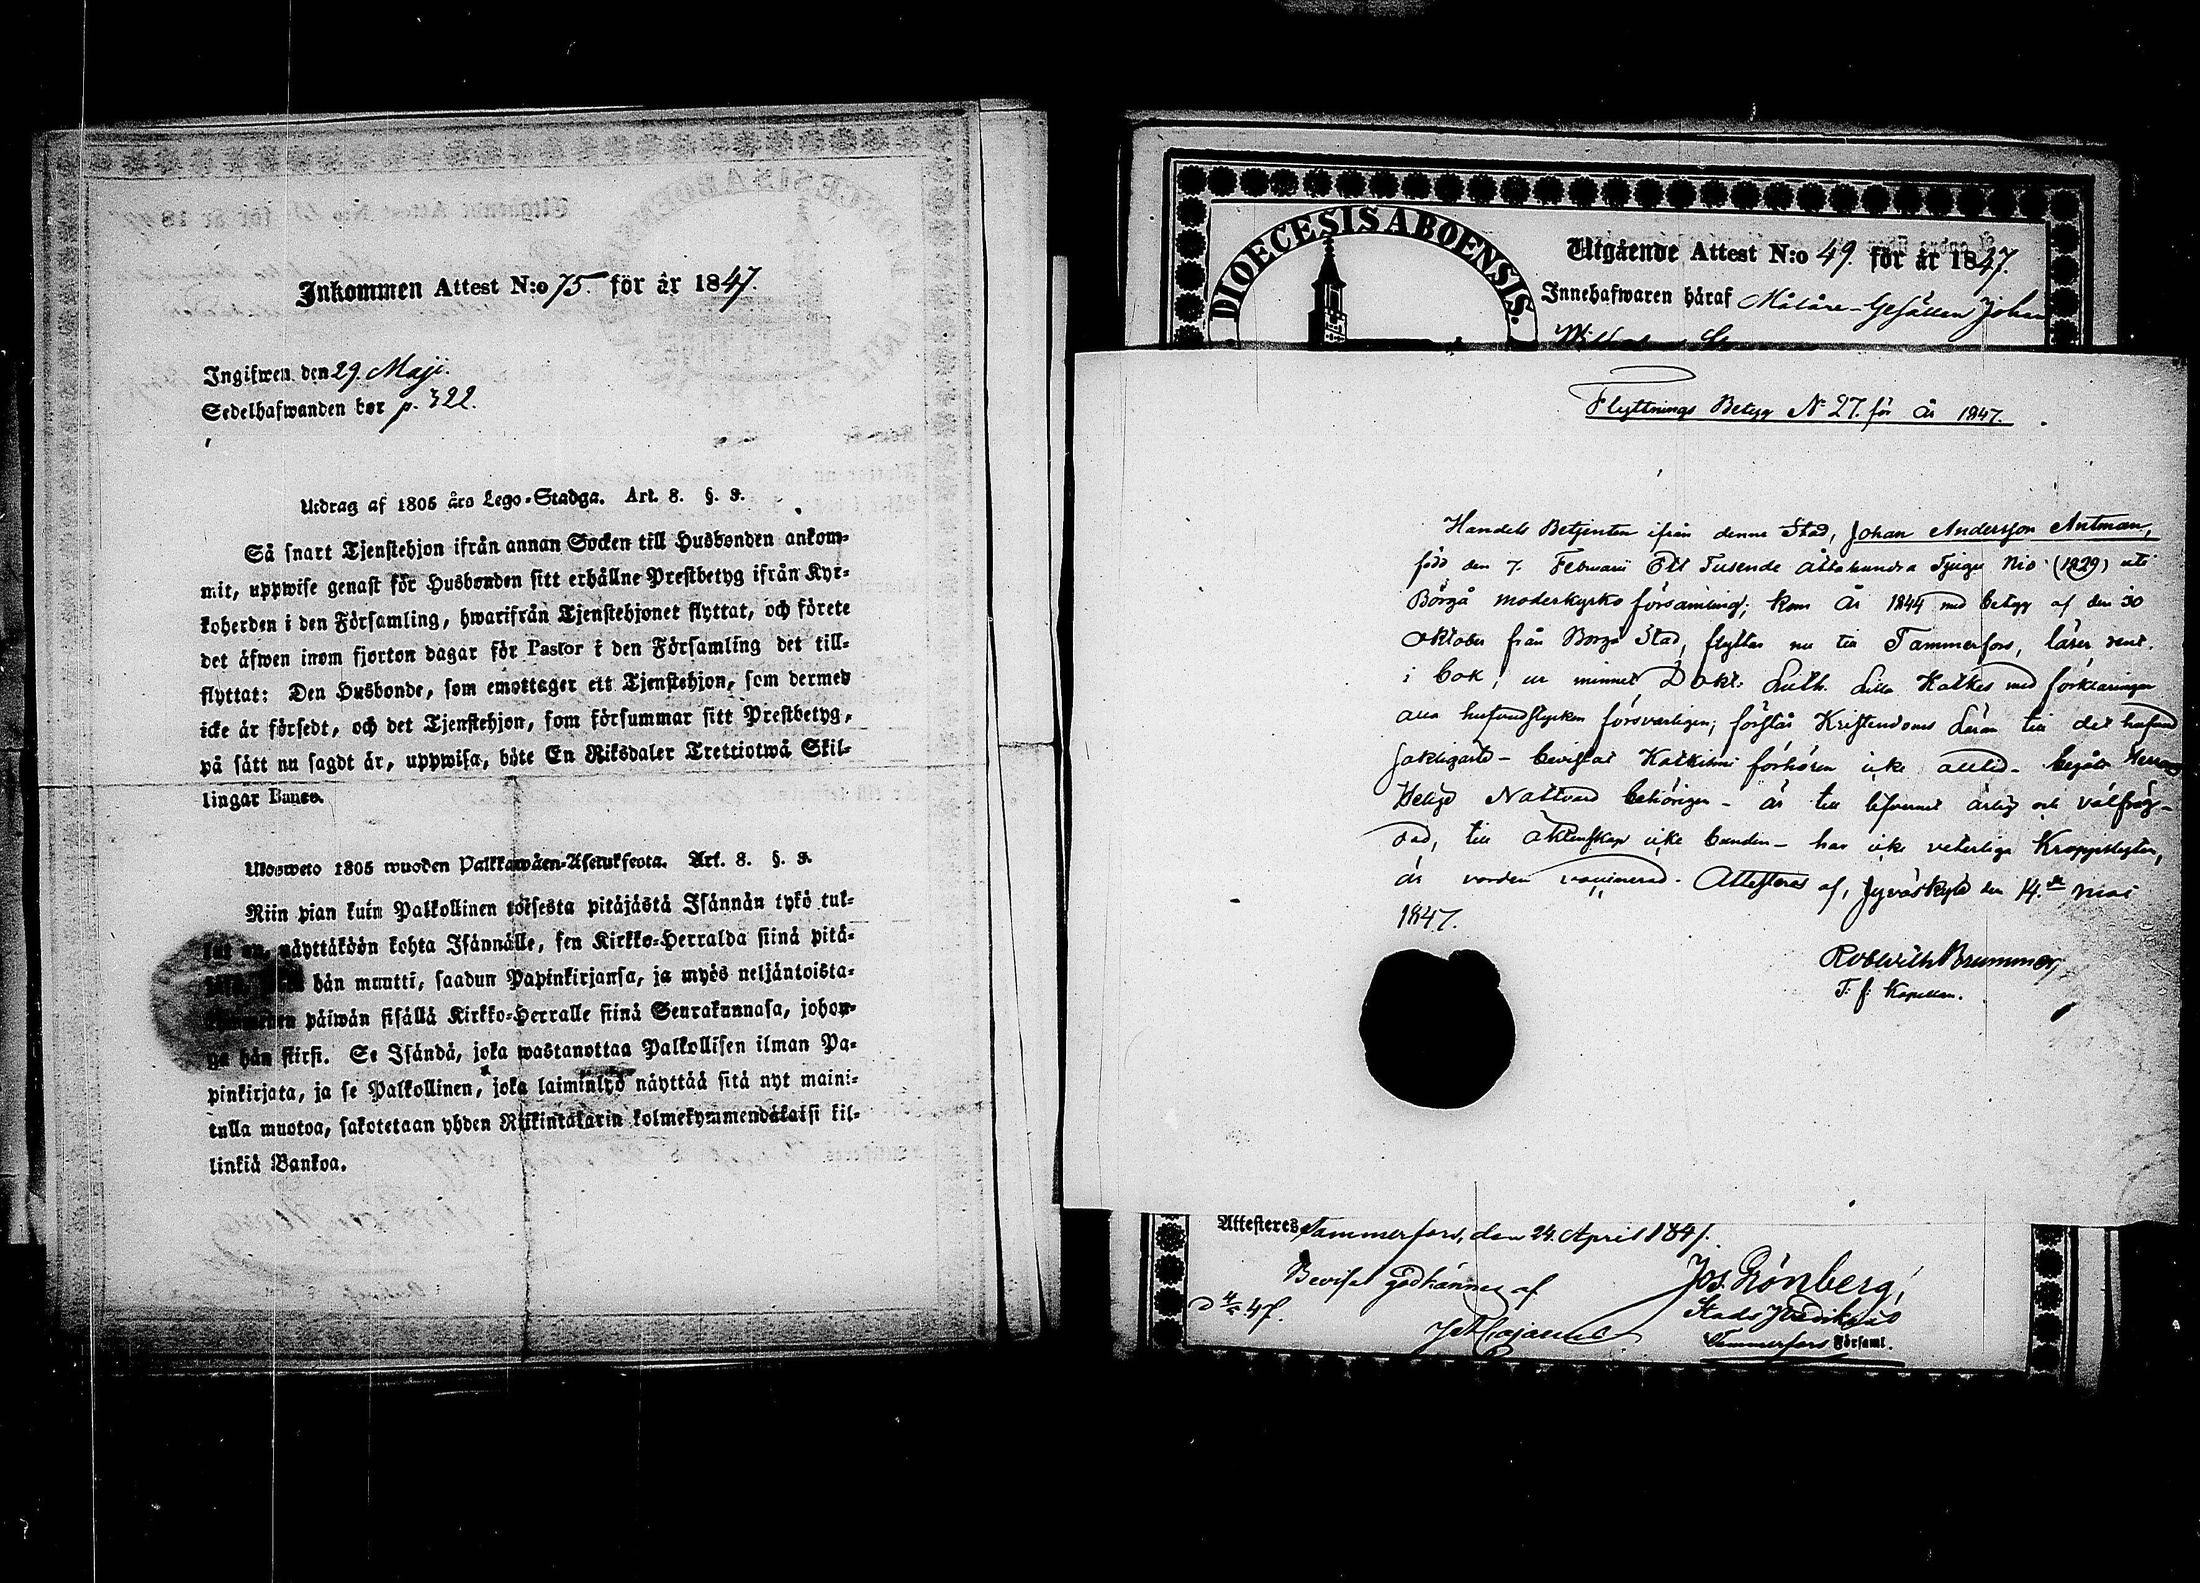 Inkommen Attest N:o 75 för år 1847.
Ingifwen den 29. Maji.
Sedelhafwanden bor p. 322.
Utdrag af 1805 års Lego-Stadga. Art. 8. §. 3.
Så snart Tjenstehjon ifrån annan Socken till Husbonden ankom-
mit, uppwise genast för Husbonden sitt erhållne Prestbetyg ifrån Kyr-
koherden i den Församling, hwarifrån Tjenstehjonet flyttat, och förete
det äfwen inom fjorton dagar för Pastor i den Församling det till-
flyttat: Den Husbonde, som emottager ett Tjenstehjon, som dermed
icke är försedt, och det Tjenstehjon, som försummar sitt Prestbetyg,
på sätt nu sagdt är, uppwisa, böte En Riksdaler Trettiotwå Skil-
lingar Banco.
Ulosweto 1805 wuoden Palkkawäen-Asetuksesta. Art. 8. §. 3.
Niin pian kuin Palkollinen toisesta pitäjästä Isännän tykö tul-
lut on, näyttäköön kohta Isännälle, sen Kirkko-Herralda siinä pitä-
hän muutti, saadun Papinkirjansa, ja myös neljäntoista-
kymmenen päiwän sisällä Kirkko-Herralle siinä Seurakunnasa, johon-
ga hän siirsi. Se Isändä, joka wastanottaa Palkollisen ilman Pa-
pinkirjata, ja se Palkollinen, joka laiminlyö näyttää sitä nyt maini-
tulla muotoa, sakotetaan yhden Riikintalarin kolmekymmendäkaksi kil-
linkiä Bankoa.
DIOECESIS ABOENSIS.
Utgående Attest N:o 49. för år 1847.
Innehafwaren häraf Målare-Gesällen Johan
Wilhelm
Flyttnings Betyg N. 27. för år 1847.
Handels Betjenten ifrån denna Stad, Johan Andersson Antman,
född den 7. Februarii Ett Tusende Åttahundra Tjugu Nio (1829) uti
Borgå moderkyrko församling; kom år 1844 med betyg af den 30
Oktober från Borgå Stad, flyttar nu till Tammerfors, läser rent
i bok, ur minnet Dokt. Luth. Lilla Katkes med förklaringen
alla hufvudstycken försvarligen; förstår Kristendoms Läran till det hufvud
sakligaste - bevistat Katkismi förhören icke alltid - begått Herrans
Helige Nattvard behörigen - är till lefvernet ärlig och välfräg-
dad, till äktenskap icke bunden - har icke veterliga Kroppslyten,
är vorden vaccinerad. Attesteras af, Jyväskylä den 14.de Maj
1847.
Rob Wilh Brummer,
T. f. Kapellan.
Attesteres Tammerfors, den 24. April 1847.
Beviset godkännes af
Jos. Grönberg,
Stads Predikant
Tammerfors Församl.